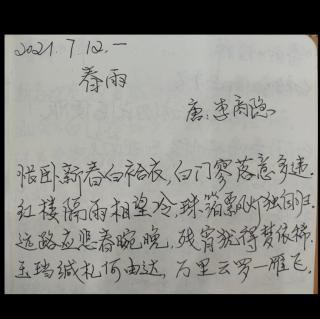 2021.7.12.一
春雨
唐:李商隐
怅卧新春白袷衣,白门寥落意多违.
红楼隔雨相望冷,珠箔飘灯独自归.
远路应悲春晼晚,残宵犹得梦依稀.
玉珰缄札何由达,万里云罗一雁飞.